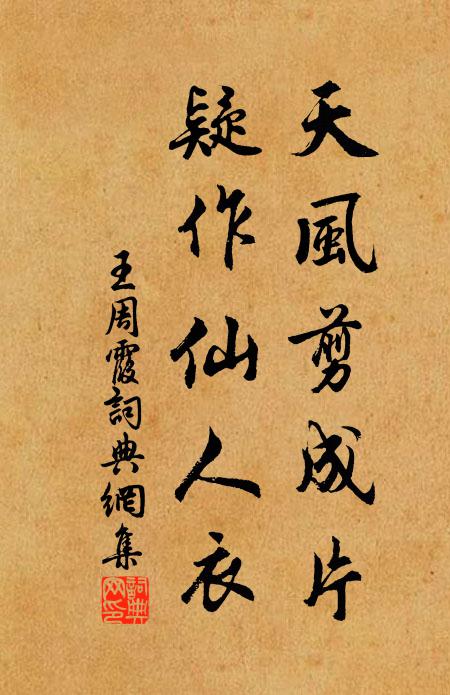 天風剪成片
疑作仙人衣
王周霞詞典網集
詞典网印